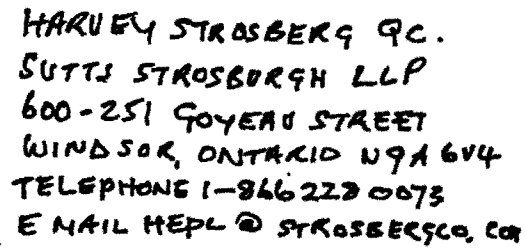 HARVEY STROSBERG QC.
SUTTS STROSBURGH LLP
600-251 GOYEAU STREET
WINDSOR, ONTARIO N9A 6V4
TELEPHONE 1-866 228 0073
E MAIL HEPL@ STROSBERGCO, COM